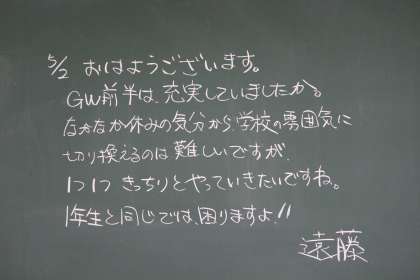 5/2 おはようございます。
GW前半は、充実していましたか。
なかなか休みの気分から、学校の雰囲気に
切り換えるのは難しいですが、
1つ1つ きっちりとやっていきたいですね。
1年生と同じでは、困りますよ!!
遠藤